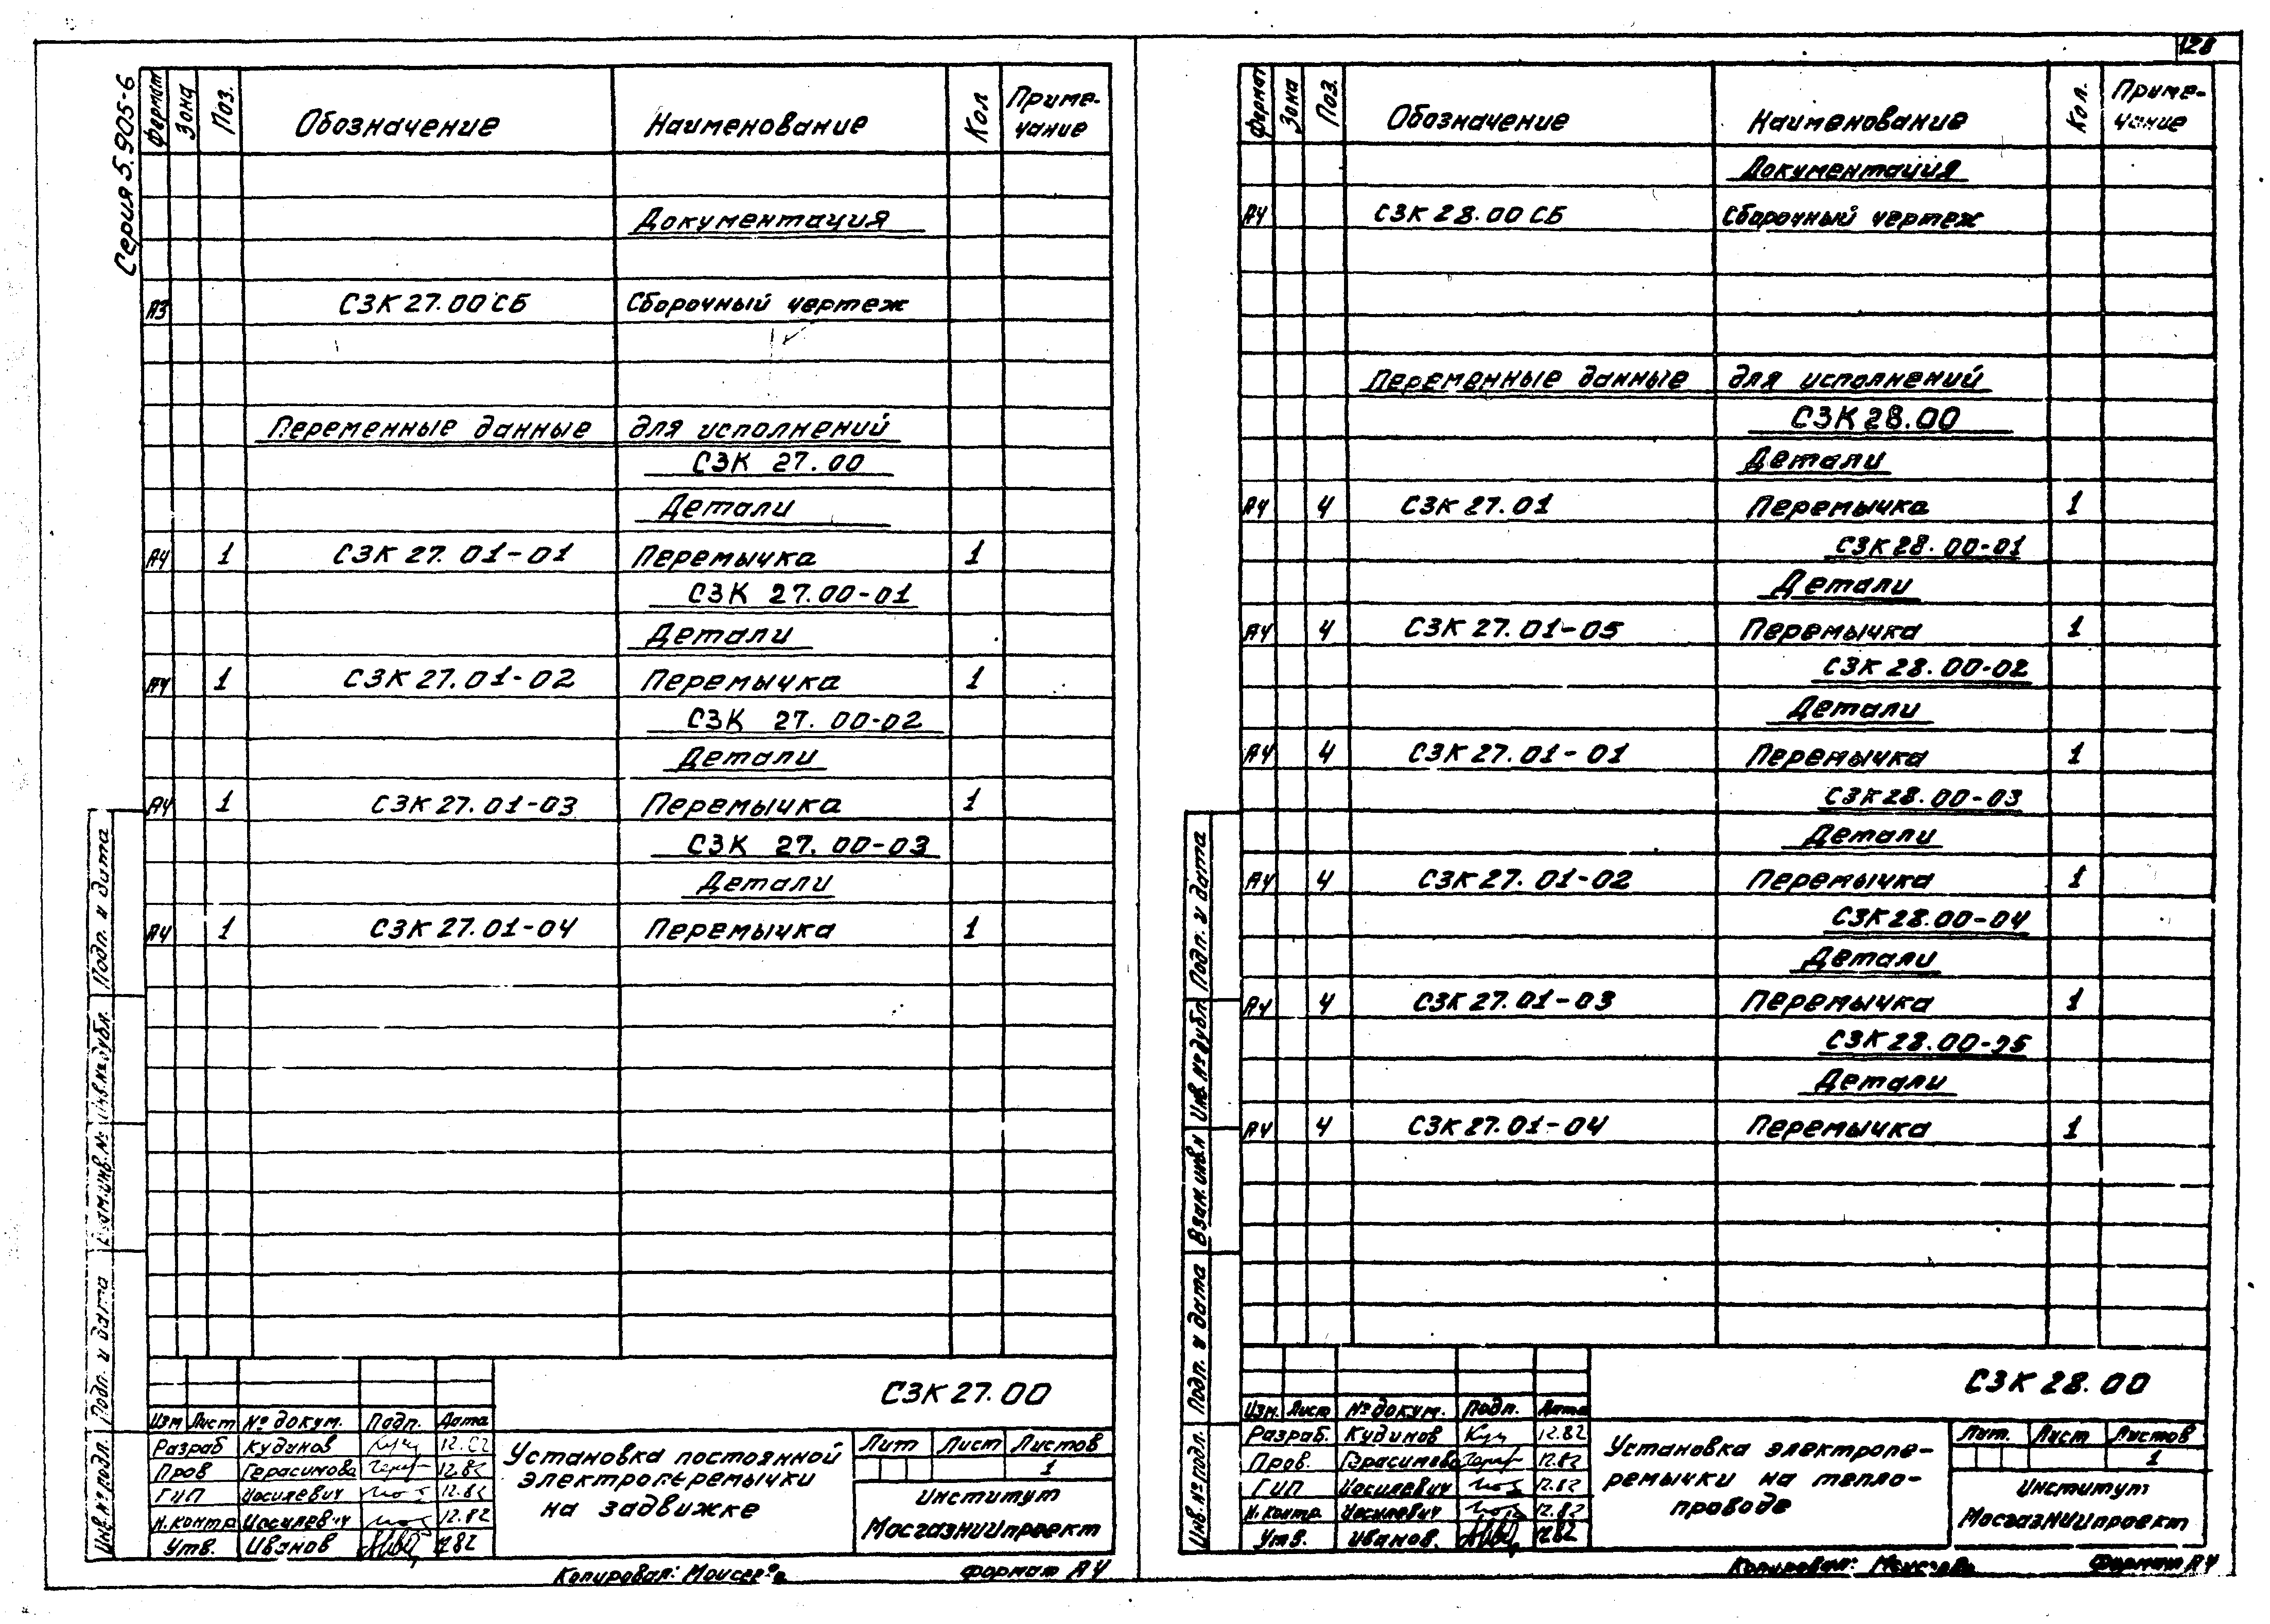 128
Серия 5.905-6
Формат Зона Поз. Обозначение Наименование Кол Приме-
чание
Документация
А3 СЗК 27.00 СБ Сборочный чертеж
Переменные данные для исполнений
СЗК 27.00
Детали
А4 1 СЗК 27.01-01 Перемычка 1
СЗК 27.00-01
Детали
А4 1 СЗК 27.01-02 Перемычка 1
СЗК 27.00-02
Детали
А4 1 СЗК 27.01-03 Перемычка 1
СЗК 27.00-03
Детали
А4 1 СЗК 27.01-04 Перемычка 1
Подп. и дата
Инв.№ дубл.
Взам.инв.№
Подп. и дата
Инв.№ подл.
СЗК 27.00
Изм Лист № докум. Подп. Дата
Разраб Кудинов 12.82
Пров Герасимова 12.82
ГИП Иосилевич 12.82
Н.контр Иосилевич 12.82
Утв. Иванов 12.82
Установка постоянной
электроперемычки
на задвижке
Лит Лист Листов
1
Институт
МосгазНИИпроект
Копировал:
Формат А4
Формат Зона Поз. Обозначение Наименование Кол. Приме-
чание
Документация
А4 СЗК 28.00 СБ Сборочный чертеж
Переменные данные для исполнений
СЗК 28.00
Детали
А4 4 СЗК 27.01 Перемычка 1
СЗК 28.00-01
Детали
А4 4 СЗК 27.01-05 Перемычка 1
СЗК 28.00-02
Детали
А4 4 СЗК 27.01-01 Перемычка 1
СЗК 28.00-03
Детали
А4 4 СЗК 27.01-02 Перемычка 1
СЗК 28.00-04
Детали
А4 4 СЗК 27.01-03 Перемычка 1
СЗК 28.00-05
Детали
А4 4 СЗК 27.01-04 Перемычка 1
Подп. и дата
Инв.№ дубл
Взам.инв.№
Подп. и дата
Инв.№ подл.
СЗК 28.00
Изм. Лист № докум. Подп. Дата
Разраб. Кудинов 12.82
Пров. Герасимова 12.82
ГИП Иосилевич 12.82
Н.контр. Иосилевич 12.82
Утв. Иванов. 12.82
Установка электропе-
ремычки на тепло-
проводе
Лит. Лист Листов
1
Институт
МосгазНИИпроект
Копировал:
Формат А4